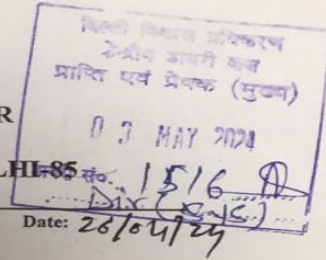 दिल्ली विकास प्राधिकरण
केन्द्रीय डायरी कक्ष
प्राप्ति एवं प्रेषक (मुख्य)
R
03 MAY 2024
LHI-85 सं. 1516
Date: 26/04/24